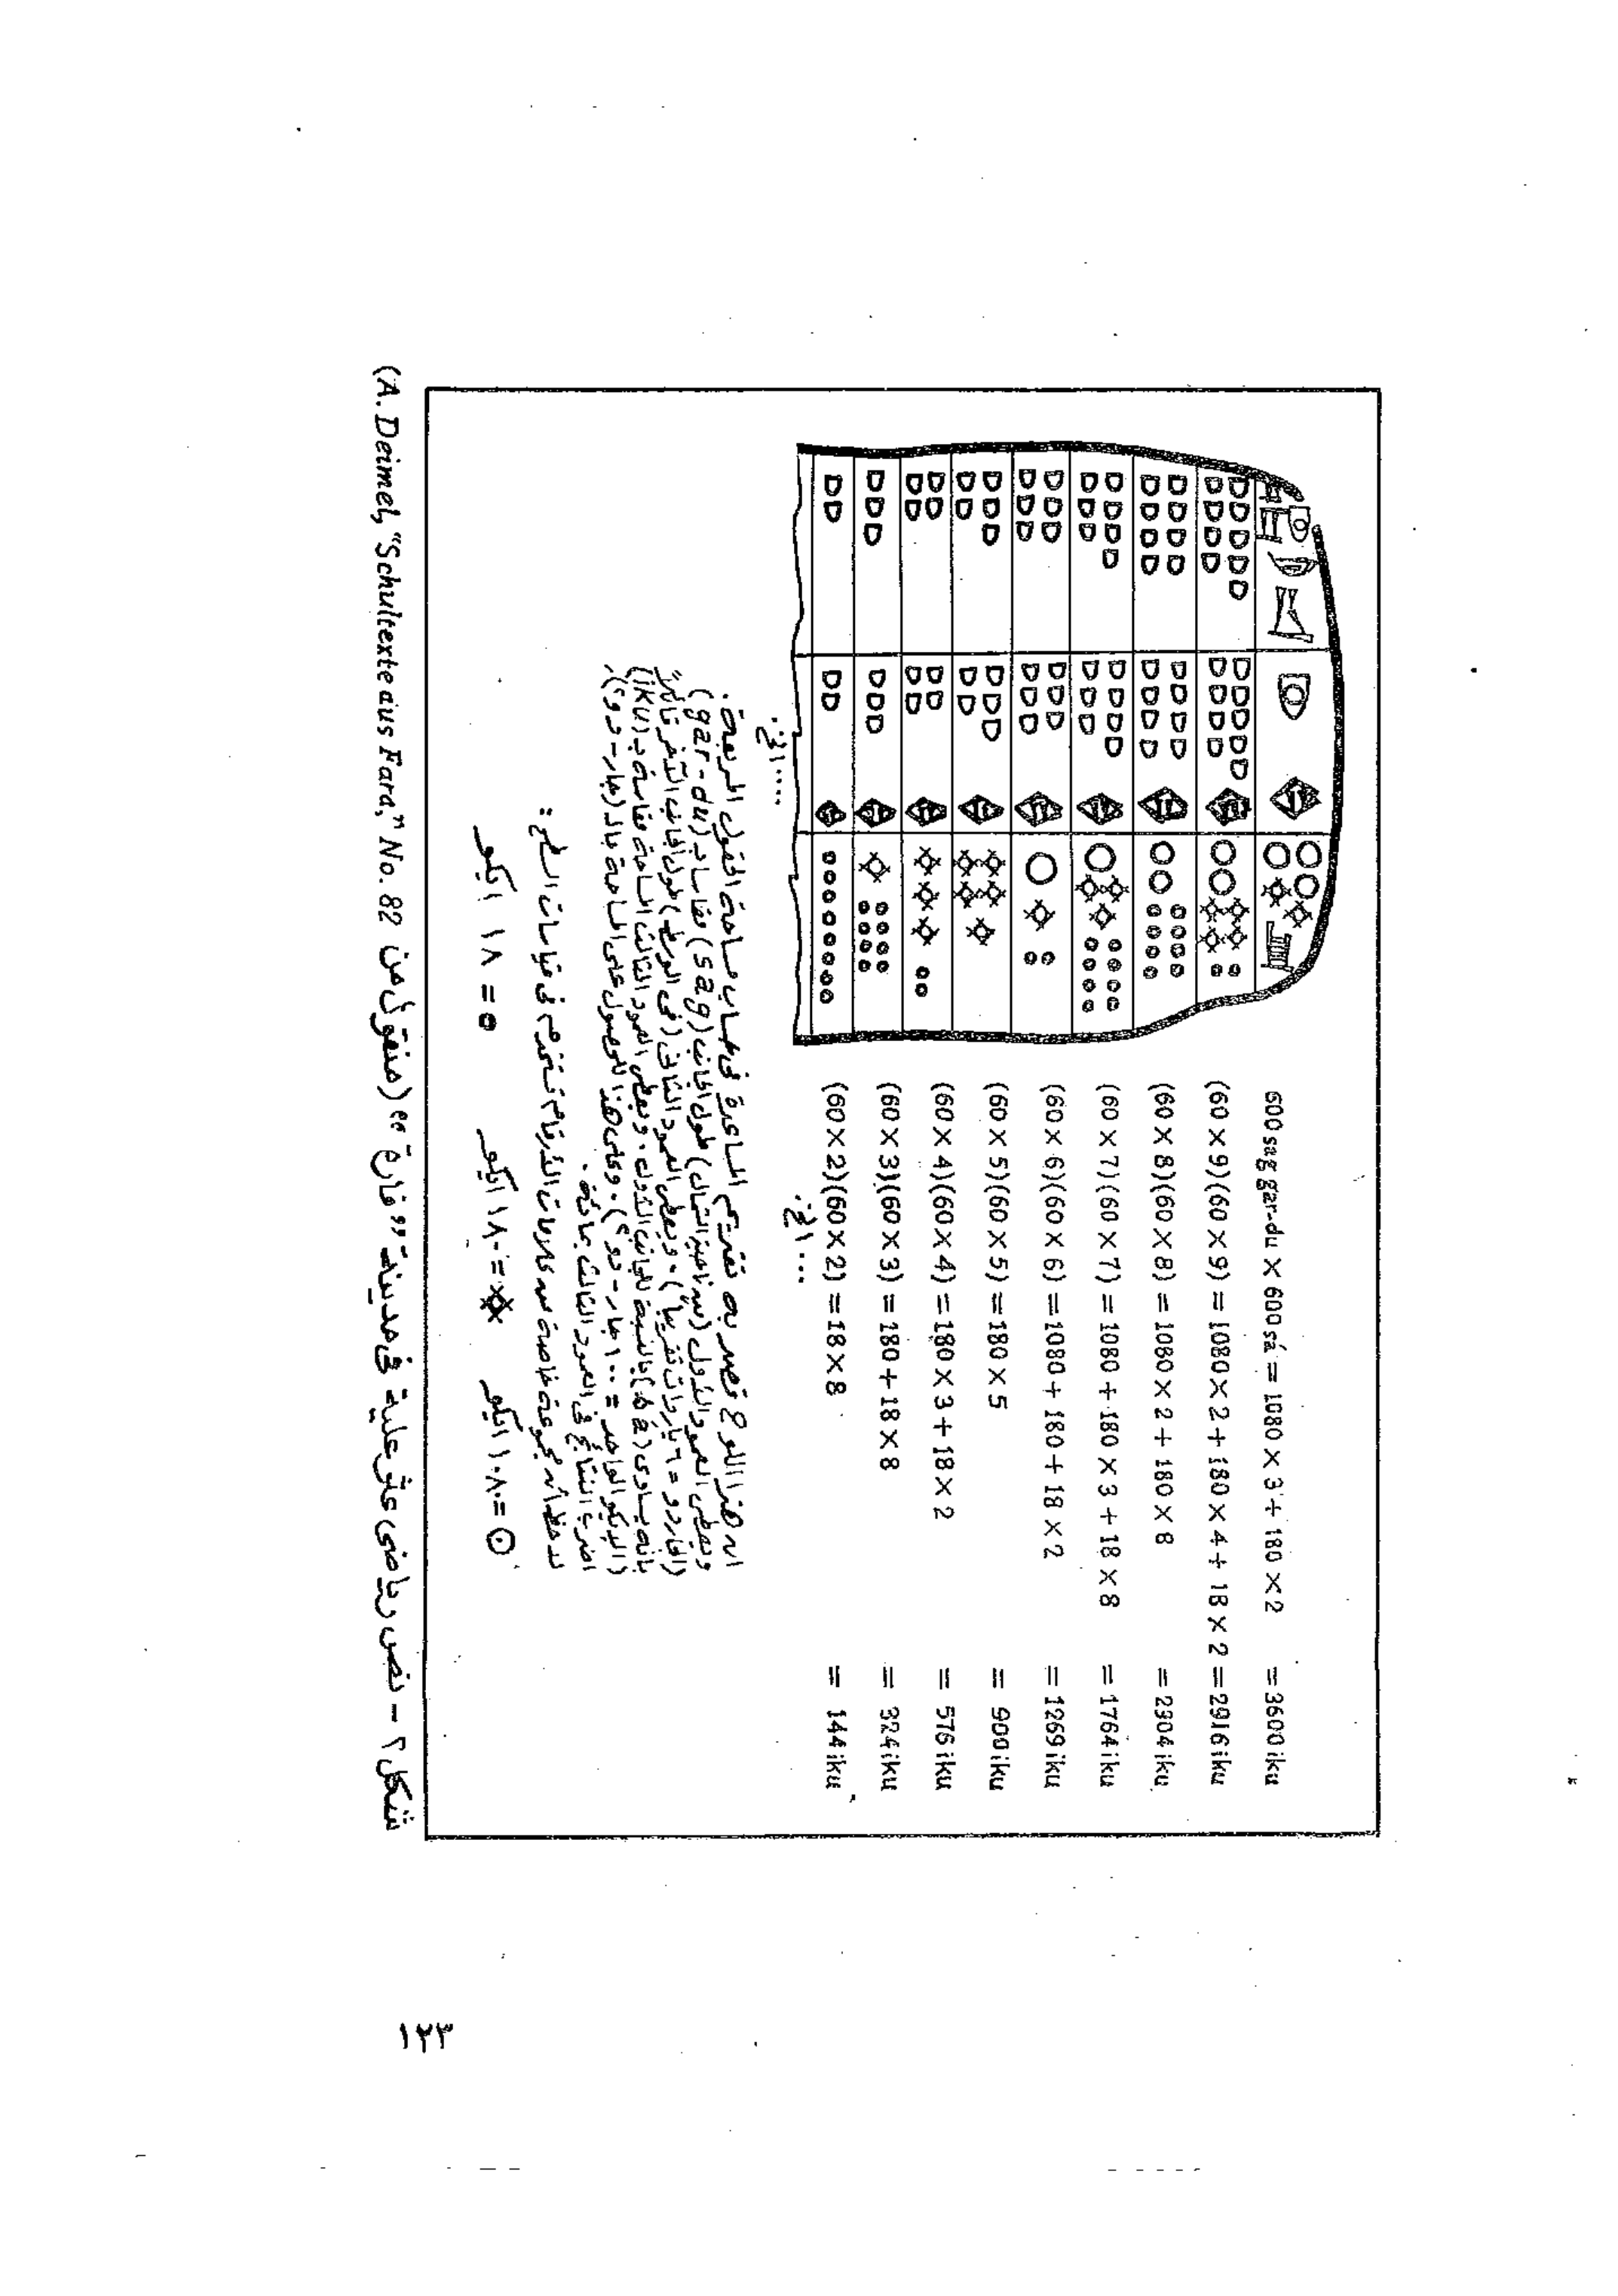 600 sag gar-du × 600 sá = 1080 × 3 + 180 × 2 = 3600 iku
(60 × 9)(60 × 9) = 1080 × 2 + 180 × 4 + 18 × 2 = 2916 iku
(60 × 8)(60 × 8) = 1080 × 2 + 180 × 8 = 2304 iku
(60 × 7)(60 × 7) = 1080 + 180 × 3 + 18 × 8 = 1764 iku
(60 × 6)(60 × 6) = 1080 + 180 + 18 × 2 = 1269 iku
(60 × 5)(60 × 5) = 180 × 5 = 900 iku
(60 × 4)(60 × 4) = 180 × 3 + 18 × 2 = 576 iku
(60 × 3)(60 × 3) = 180 + 18 × 8 = 324 iku
(60 × 2)(60 × 2) = 18 × 8 = 144 iku
... الخ.
.... الخ.
ان هذا اللوح قصد به تقديم المساعدة في حساب مساحة الحقول المربعة.
ويعطى العمود الأول (من ناحية الشمال) طول الجانب (sag) مقاسا بـ (gar-du)
(الجاردو = ٦ ياردات تقريبا). ويعطى العمود الثاني (في الوسط) طول الجانب الآخر
بأنه يساوى (sá) بالنسبة للجانب الأول. ويعطى العمود الثالث المساحة مقاسة بـ (iku)
(الإيكو الواحد = ١٠٠ جار-دو٢). وعلى هذا للحصول على المساحة بالـ (جار-دو٢)،
اضرب النتائج في العمود الثالث بمائة.
لاحظ أنه مجموعة خاصة من علامات الأرقام تستخدم في قياسات السطح:
= ١٠٨٠ ايكو = ١٨٠ ايكو = ١٨ ايكو
شكل ٢ - نص رياضى عثر عليه في مدينة "فارة" (منقول من A. Deimel, "Schultexte aus Fara," No. 82)
١٢٣